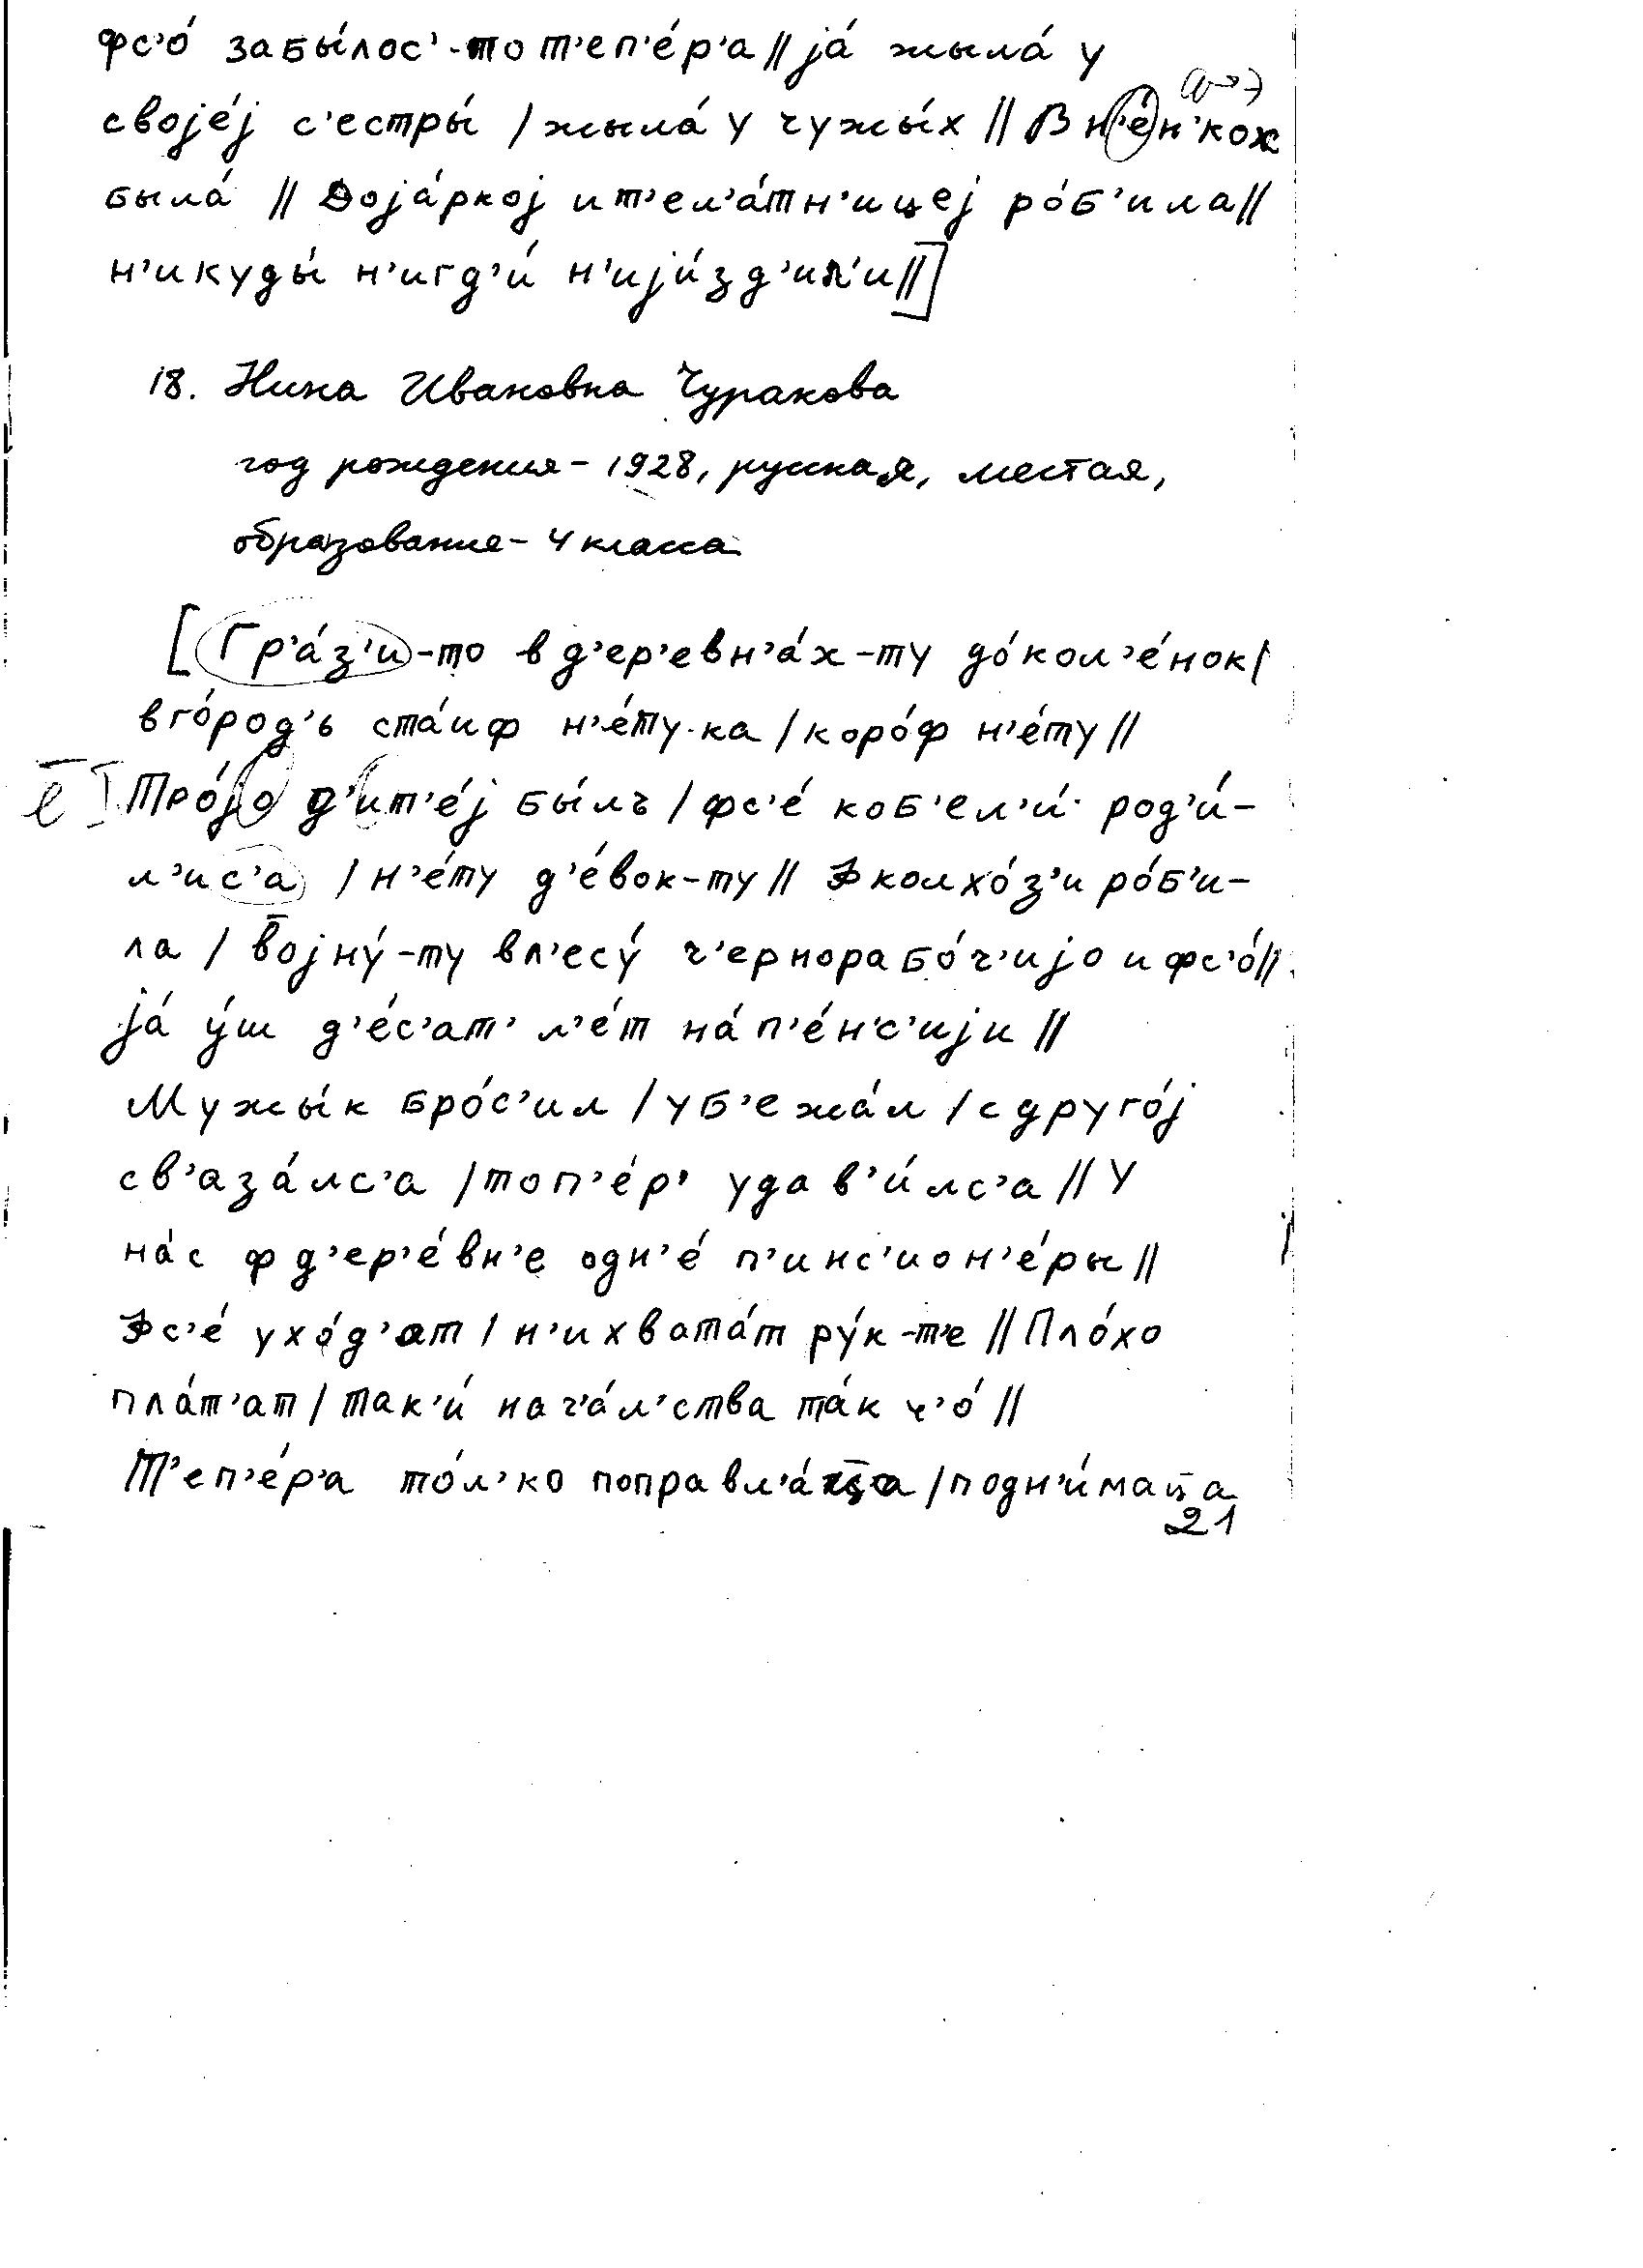 фс'о́ забы́лос'-то т'еп'е́р'а || jа́ жыла́ у
своjе́j с'естры́ / жыла́ у чужы́х || В н'е́н'кох
была́ || Доjа́ркоj и т'ел'а́тн'ицеj ро́б'ила ||
н'икуды́ н'игд'и́ н'иjи́зд'ил'и || ]
18. Нина Ивановна Чуракова
год рождения - 1928, русская, местая,
образование - 4 класса
[Гр'а́з'и-то в д'ер'евн'а́х-ту до́ кол'е́нок /
в го́род'ь ста́иф н'е́ту-ка / коро́ф н'е́ту ||
Тро́jо д'ит'е́j бы́лъ / фс'е́ коб'ел'и́ род'и́-
л'ис'а / н'е́ту д'е́вок-ту || Ф колхо́з'и ро́б'и-
ла / в̄оjну́-ту в л'есу́ ч'ернорабо́ч'иjо и фс'о́ ||
jа́ у́ш д'е́с'ат' л'е́т на́ п'е́н'с'иjи ||
Мужы́к бро́с'ил / уб'ежа́л / с друго́j
св'аза́лс'а / топ'е́р' удав'и́лс'а || У
на́с ф д'ер'е́вн'е одн'е́ п'инс'ион'е́ры ||
Фс'е́ ухо́д'ат / н'и хвата́т ру́к-т'е || Пло́хо
пла́т'ат / так'и́ нач'а́л'ства та́к ч'о́ ||
Т'еп'е́р'а то́л'ко поправл'а́ц̄а / подн'и́мац̄а
21